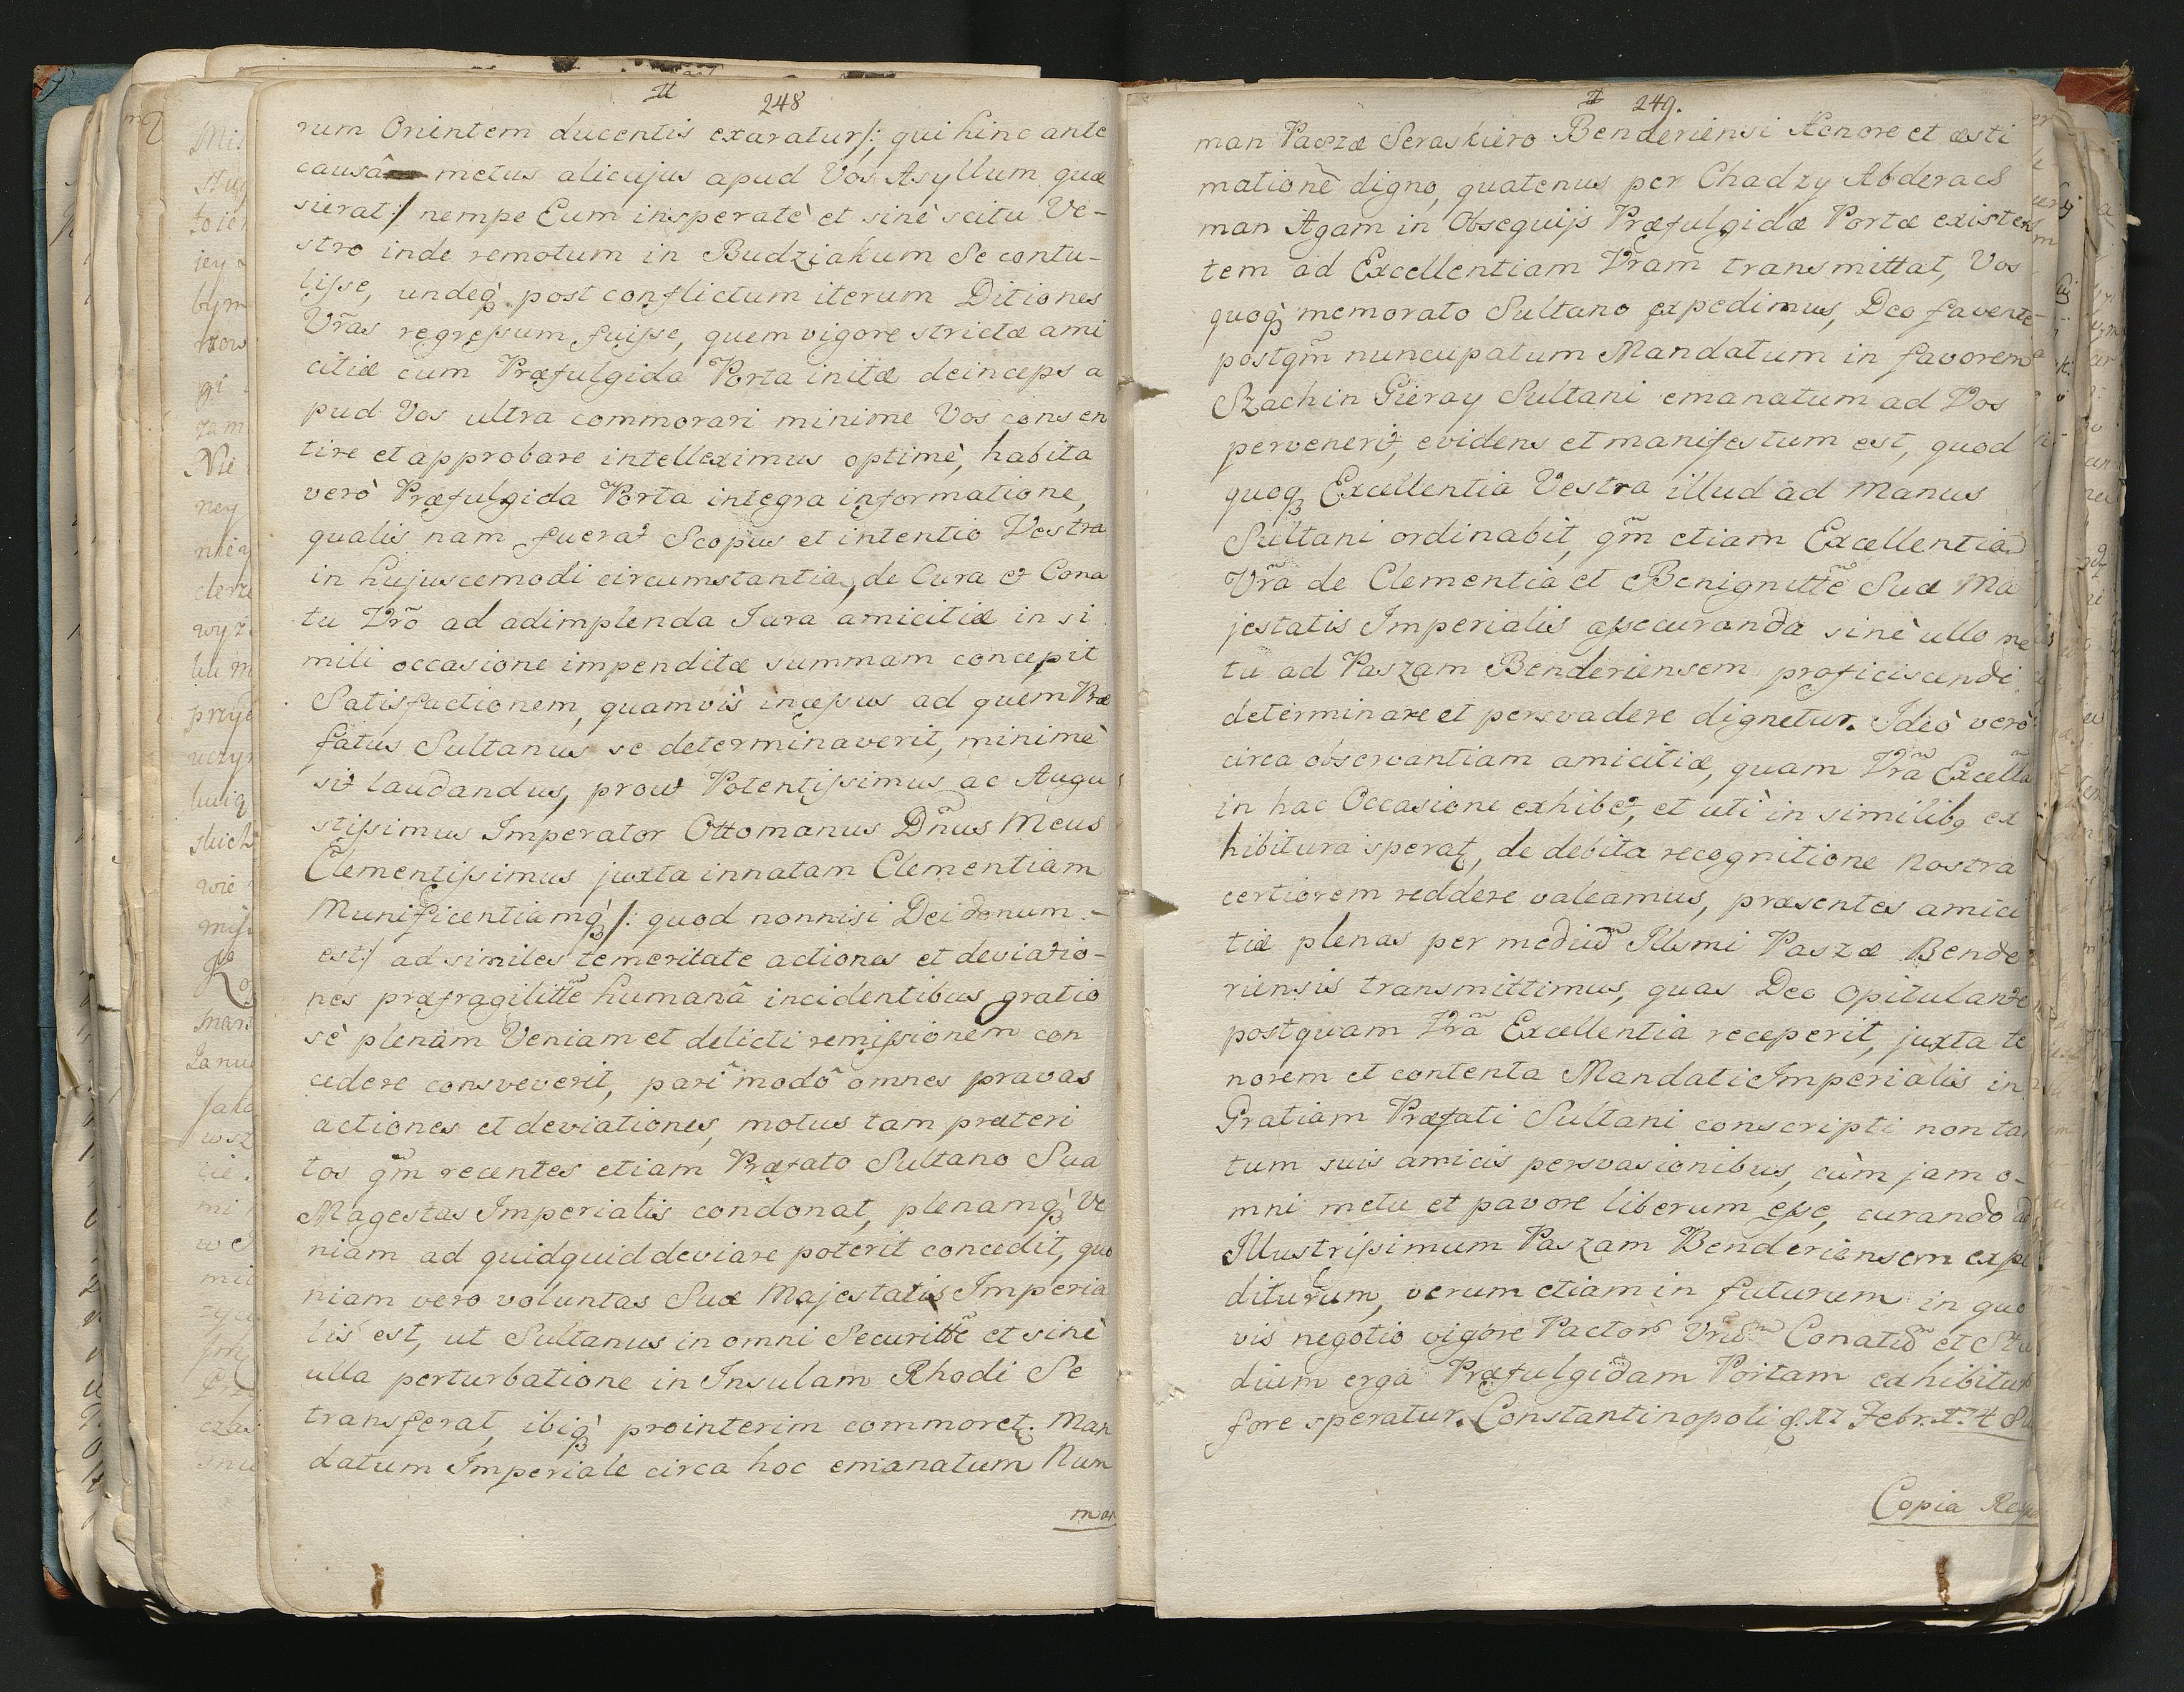 248
rum Orientem ducentis exaratur/:, qui hinc ante
causâ metus alicujus apud Vos Asyllum quæ
sierat:/ nempe Eum insperatè et sinè scitu Ve-
stro inde remotum in Budziakum Se contu-
lisse, undeq̀ꝫ post conflictum iterum Ditiones
Vr̃as regressum fuisse, quem vigore strictæ ami
citiæ cum Præfulgida Porta initæ deinceps a
pud Vos ultra commorari minime Vos consen
tire et approbare intelleximus optimè, habita
verò Præfulgida Porta integra informatione,
qualis nam fuerat Scopus et intentio Vestra
in hujuscemodi circumstantia, de Cura et Cona
tu Vr̃o ad adimplenda Jura amicitiæ in si
mili occasione impenditæ summam concepit
Satisfactionem, quamvis incessus ad quem Præ
fatus Sultanus se determinaverit, minimè
sit laudandus, prout Potentissimus ac Augu
stissimus Imperator Ottomanus Dn̄us Meus
Clementissimus juxta innatam Clementiam
Munificentiamq̀ꝫ /: quod nonnisi Dei donum -
est:/ ad similes temeritate actiones et deviatio-
nes præfragilitt̃e humanâ incidentibus gratio
sè plenam Veniam et delicti remissionem con
cedere consveverit, pari modo omnes pravas
actiones et deviationes, motus tam præteri
tos qm̃ recentes etiam Præfato Sultano Sua
Magestas Imperialis condonat, plenamq̀ꝫ Ve
niam ad quidquid deviare poterit concedit, quo
niam vero voluntas Suæ Majestatis Imperia
lis est, ut Sultanus in omni Securitt̃e et sinè
ulla perturbatione in Insulam Rhodi Se
transferat, ibiq̀ꝫ prointerim commoretꝫ. Man
datum Imperiale circa hoc emanatum Num
man
249.
man Paszæ Seraskiero Benderiensi Honore et æsti
matioñe digno, quatenus per Chadzy Abderach
man Agam in Obsequijs Præfulgidæ Portæ existen
tem ad Excellentiam Vr̃am transmittat, Vos
quoqꝫ memorato Sultano expedimus, Deo favente
postqm̃ nuncupatum Mandatum in favorem
Szachin Gieray Sultani emanatum ad Vos
pervenerit, evidens et manifestum est, quod
quoqꝫ Excellentia Vestra illud ad manus
Sultani ordinabit, qm̃ etiam Excellentia
Vr̃a de Clementia et Benignitt̃e Suæ Ma
jestatis Imperialis assecuranda sinè ullo me
tu ad Paszam Benderiensem proficiscendi
determinare et persvadere dignetur. Ideò verò
circa observantiam amicitiæ, quam Vr̃a Excell̃a
in hac Occasione exhibet, et uti in similibꝫ ex
hibitura speratꝫ, de debita recognitione nostra
certiorem reddere valeamus, præsentes amici
tiæ plenas per mediũ Illsmi Paszæ Bende
riensis transmittimus, quas Deo Opitulante
postquam Vr̃a Excellentia receperit, juxta te
norem et contenta Mandati Imperialis in
Gratiam Præfati Sultani conscripti non tan
tum suis amicis persvasionibus, cùm jam o-
mni metu et pavore liberum esse, curando ad
Illustrissimum Paszam Benderiensem expe
diturum, verum etiam in futurum in quo
vis negotio vigore Pactorũ Vr̃um Conatũ et Stu
dium erga Præfulgidam Portam exhibitur
fore speratur. Constantinopoli d. 11 Febr.
Copia